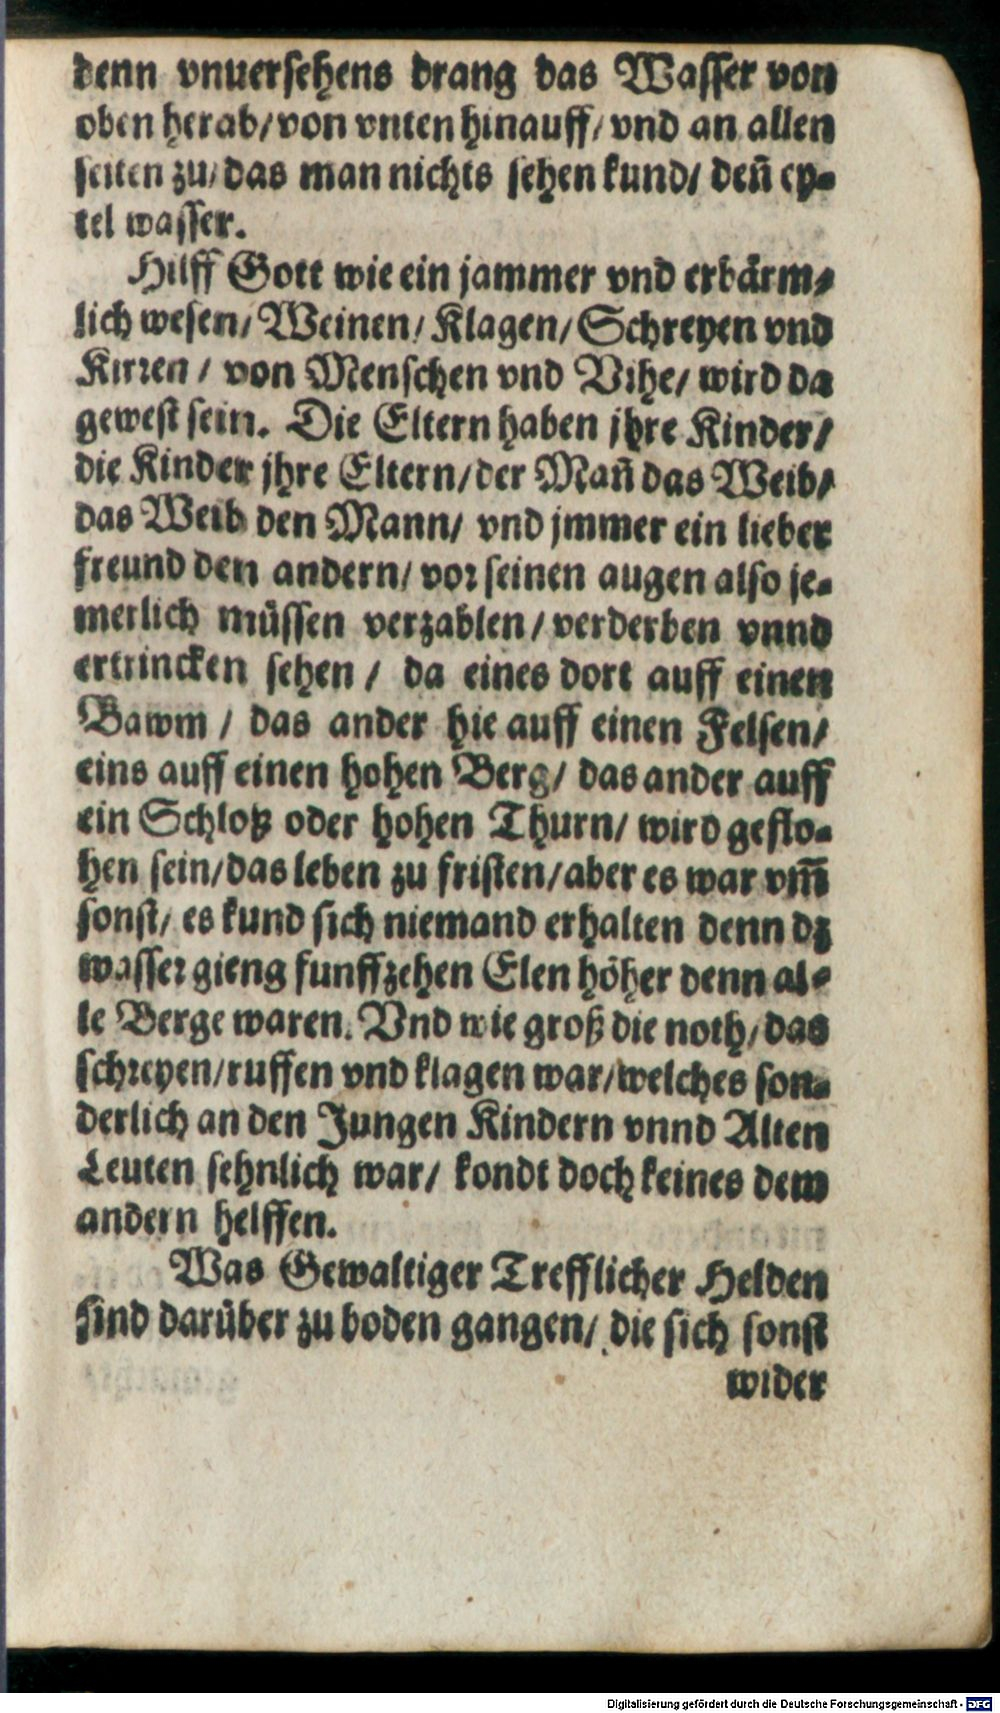 denn vnuersehens drang das Wasser von
oben herab/ von vnten hinauff/ vnd an allen
seiten zu/ das man nichts sehen kund/ deñ ey-
tel wasser.
Hilff Gott wie ein jammer vnd erbärm-
lich wesen/ Weinen/ Klagen/ Schreyen vnd
Kirren/ von Menschen vnd Vihe/ wird da
gewest sein. Die Eltern haben jhre Kinder/
die Kinder jhre Eltern/ der Mañ das Weib/
das Weib den Mann/ vnd jmmer ein lieber
freund den andern/ vor seinen augen also je-
merlich müssen verzablen/ verderben vnnd
ertrincken sehen/ da eines dort auff einen
Bawm/ das ander hie auff einen Felsen/
eins auff einen hohen Berg/ das ander auff
ein Schloß oder hohen Thurn/ wird geflo-
hen sein/ das leben zu fristen/ aber es war vm̃
sonst/ es kund sich niemand erhalten denn dz
wasser gieng funffzehen Elen höher denn al-
le Berge waren. Vnd wie groß die noth/ das
schreyen/ ruffen vnd klagen war/ welches son-
derlich an den Jungen Kindern vnnd Alten
Leuten sehnlich war/ kondt doch keines dem
andern helffen.
Was Gewaltiger Trefflicher Helden
sind darüber zu boden gangen/ die sich sonst
wider
Digitalisierung gefördert durch die Deutsche Forschungsgemeinschaft - DFG